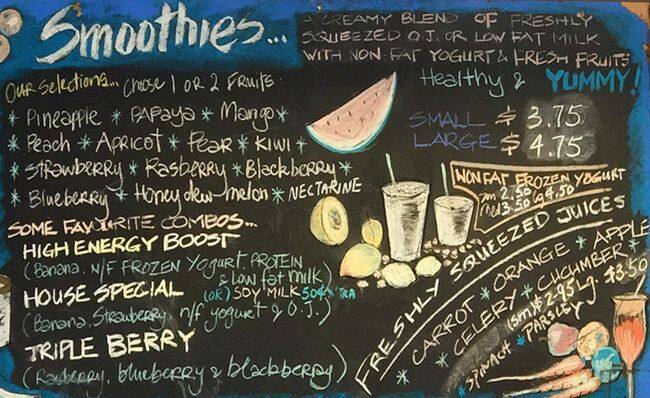 Smoothies...
A CREAMY BLEND OF FRESHLY
SQUEEZED O.J. OR LOW FAT MILK
WITH NON-FAT YOGURT & FRESH FRUITS
Healthy & YUMMY!
Our Selections... Choose 1 or 2 Fruits:
* Pineapple * PAPAya * Mango *
* Peach * Apricot * Pear * Kiwi *
* Strawberry * Rasberry * Blackberry *
* Blueberry * Honeydew melon * NECTARINE
SMALL $ 3.75
LARGE $ 4.75
NON FAT FROZEN YOGURT
sm 2.50 lg 4.50
med 3.50
SOME FAVOURITE COMBOS...
HIGH ENERGY BOOST
(Banana, N/F FROZEN Yogurt, PROTEIN
& low fat milk)
HOUSE SPECIAL (OR) SOY MILK 50¢ XTRA
(Banana, Strawberry, n/f yogurt & O.J.)
TRIPLE BERRY
(Rasberry, blueberry & blackberry)
FRESHLY SQUEEZED JUICES
* CARROT * ORANGE * APPLE
* CELERY * CUCUMBER *
SPINACH * PARSLEY
sm $2.95 Lg. $3.50